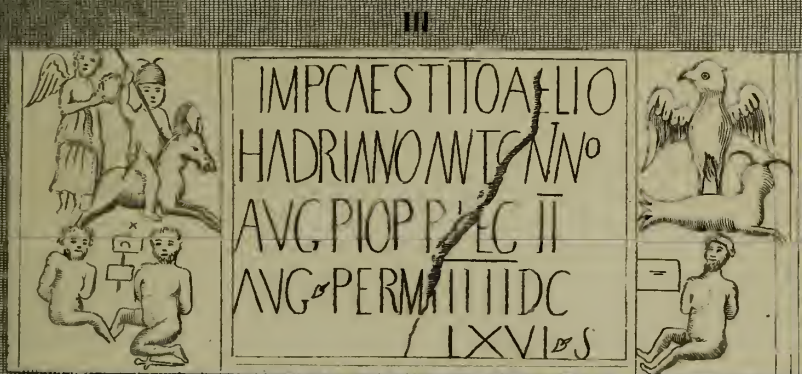 III
IMPCAESTITOAELIO
HADRIANOANTONINO
AVG PIOP P LEG II
AVG PERM IIIIDC
LXVI S